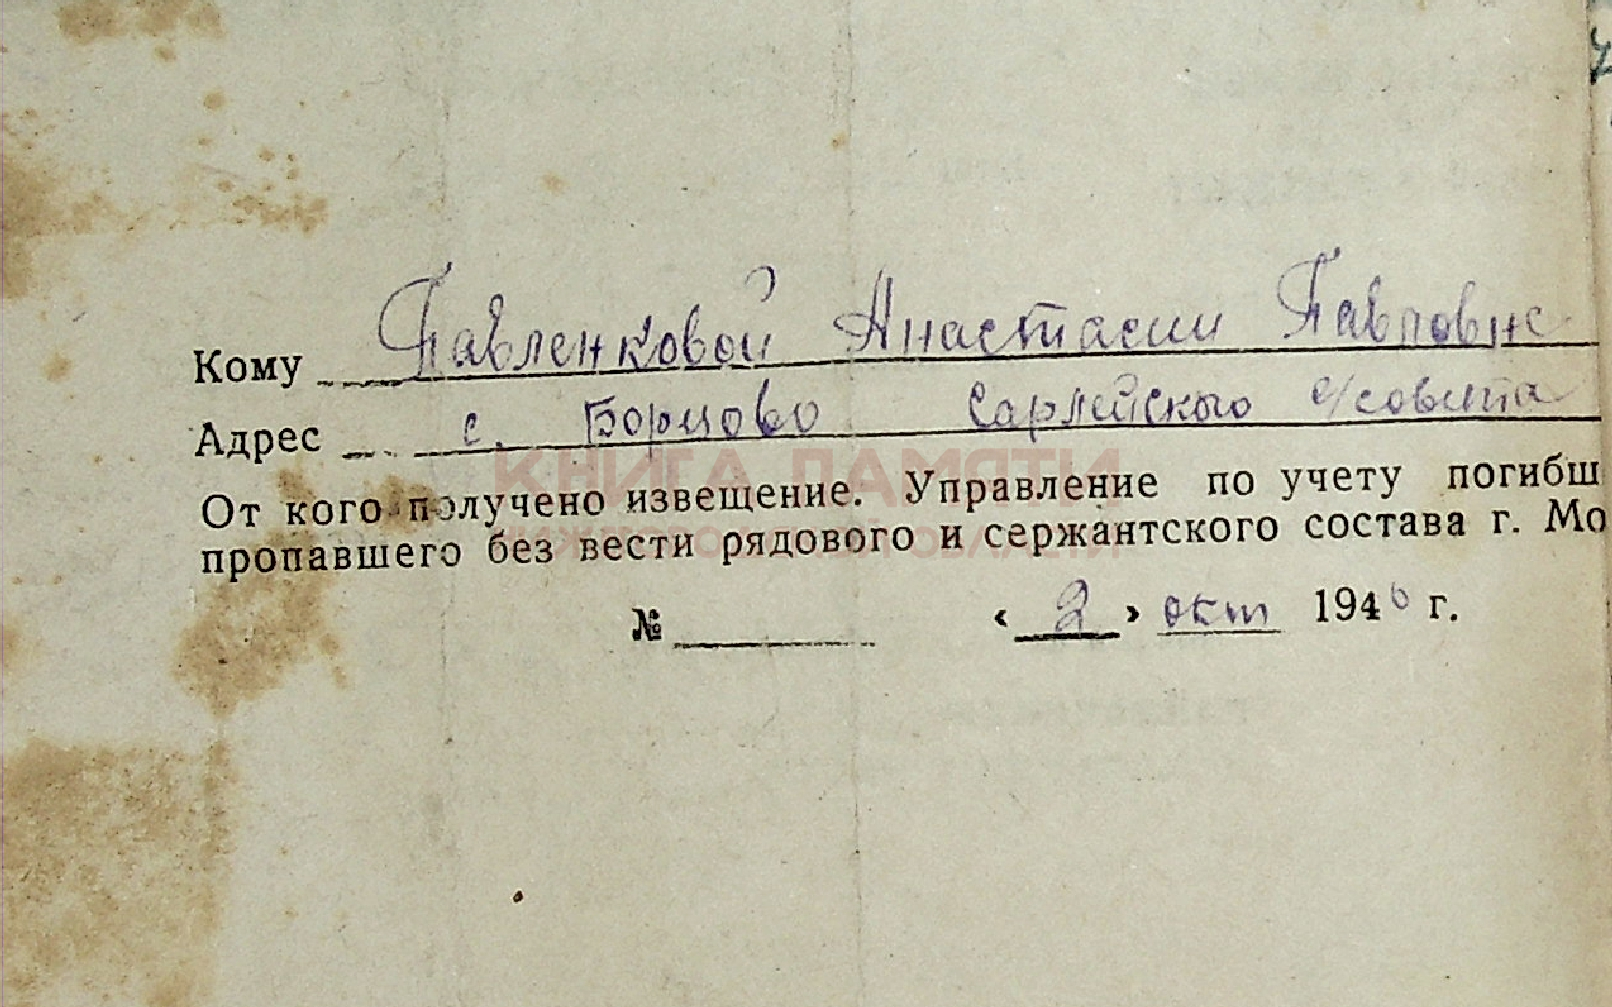 Кому Павленковой Анастасии Павловне
Адрес с. Борцово Сарлейского с/совета
КНИГА ПАМЯТИ
От кого получено извещение. Управление по учету погибш
пропавшего без вести рядового и сержантского состава г. Мо
№ « 2 » окт 1946 г.